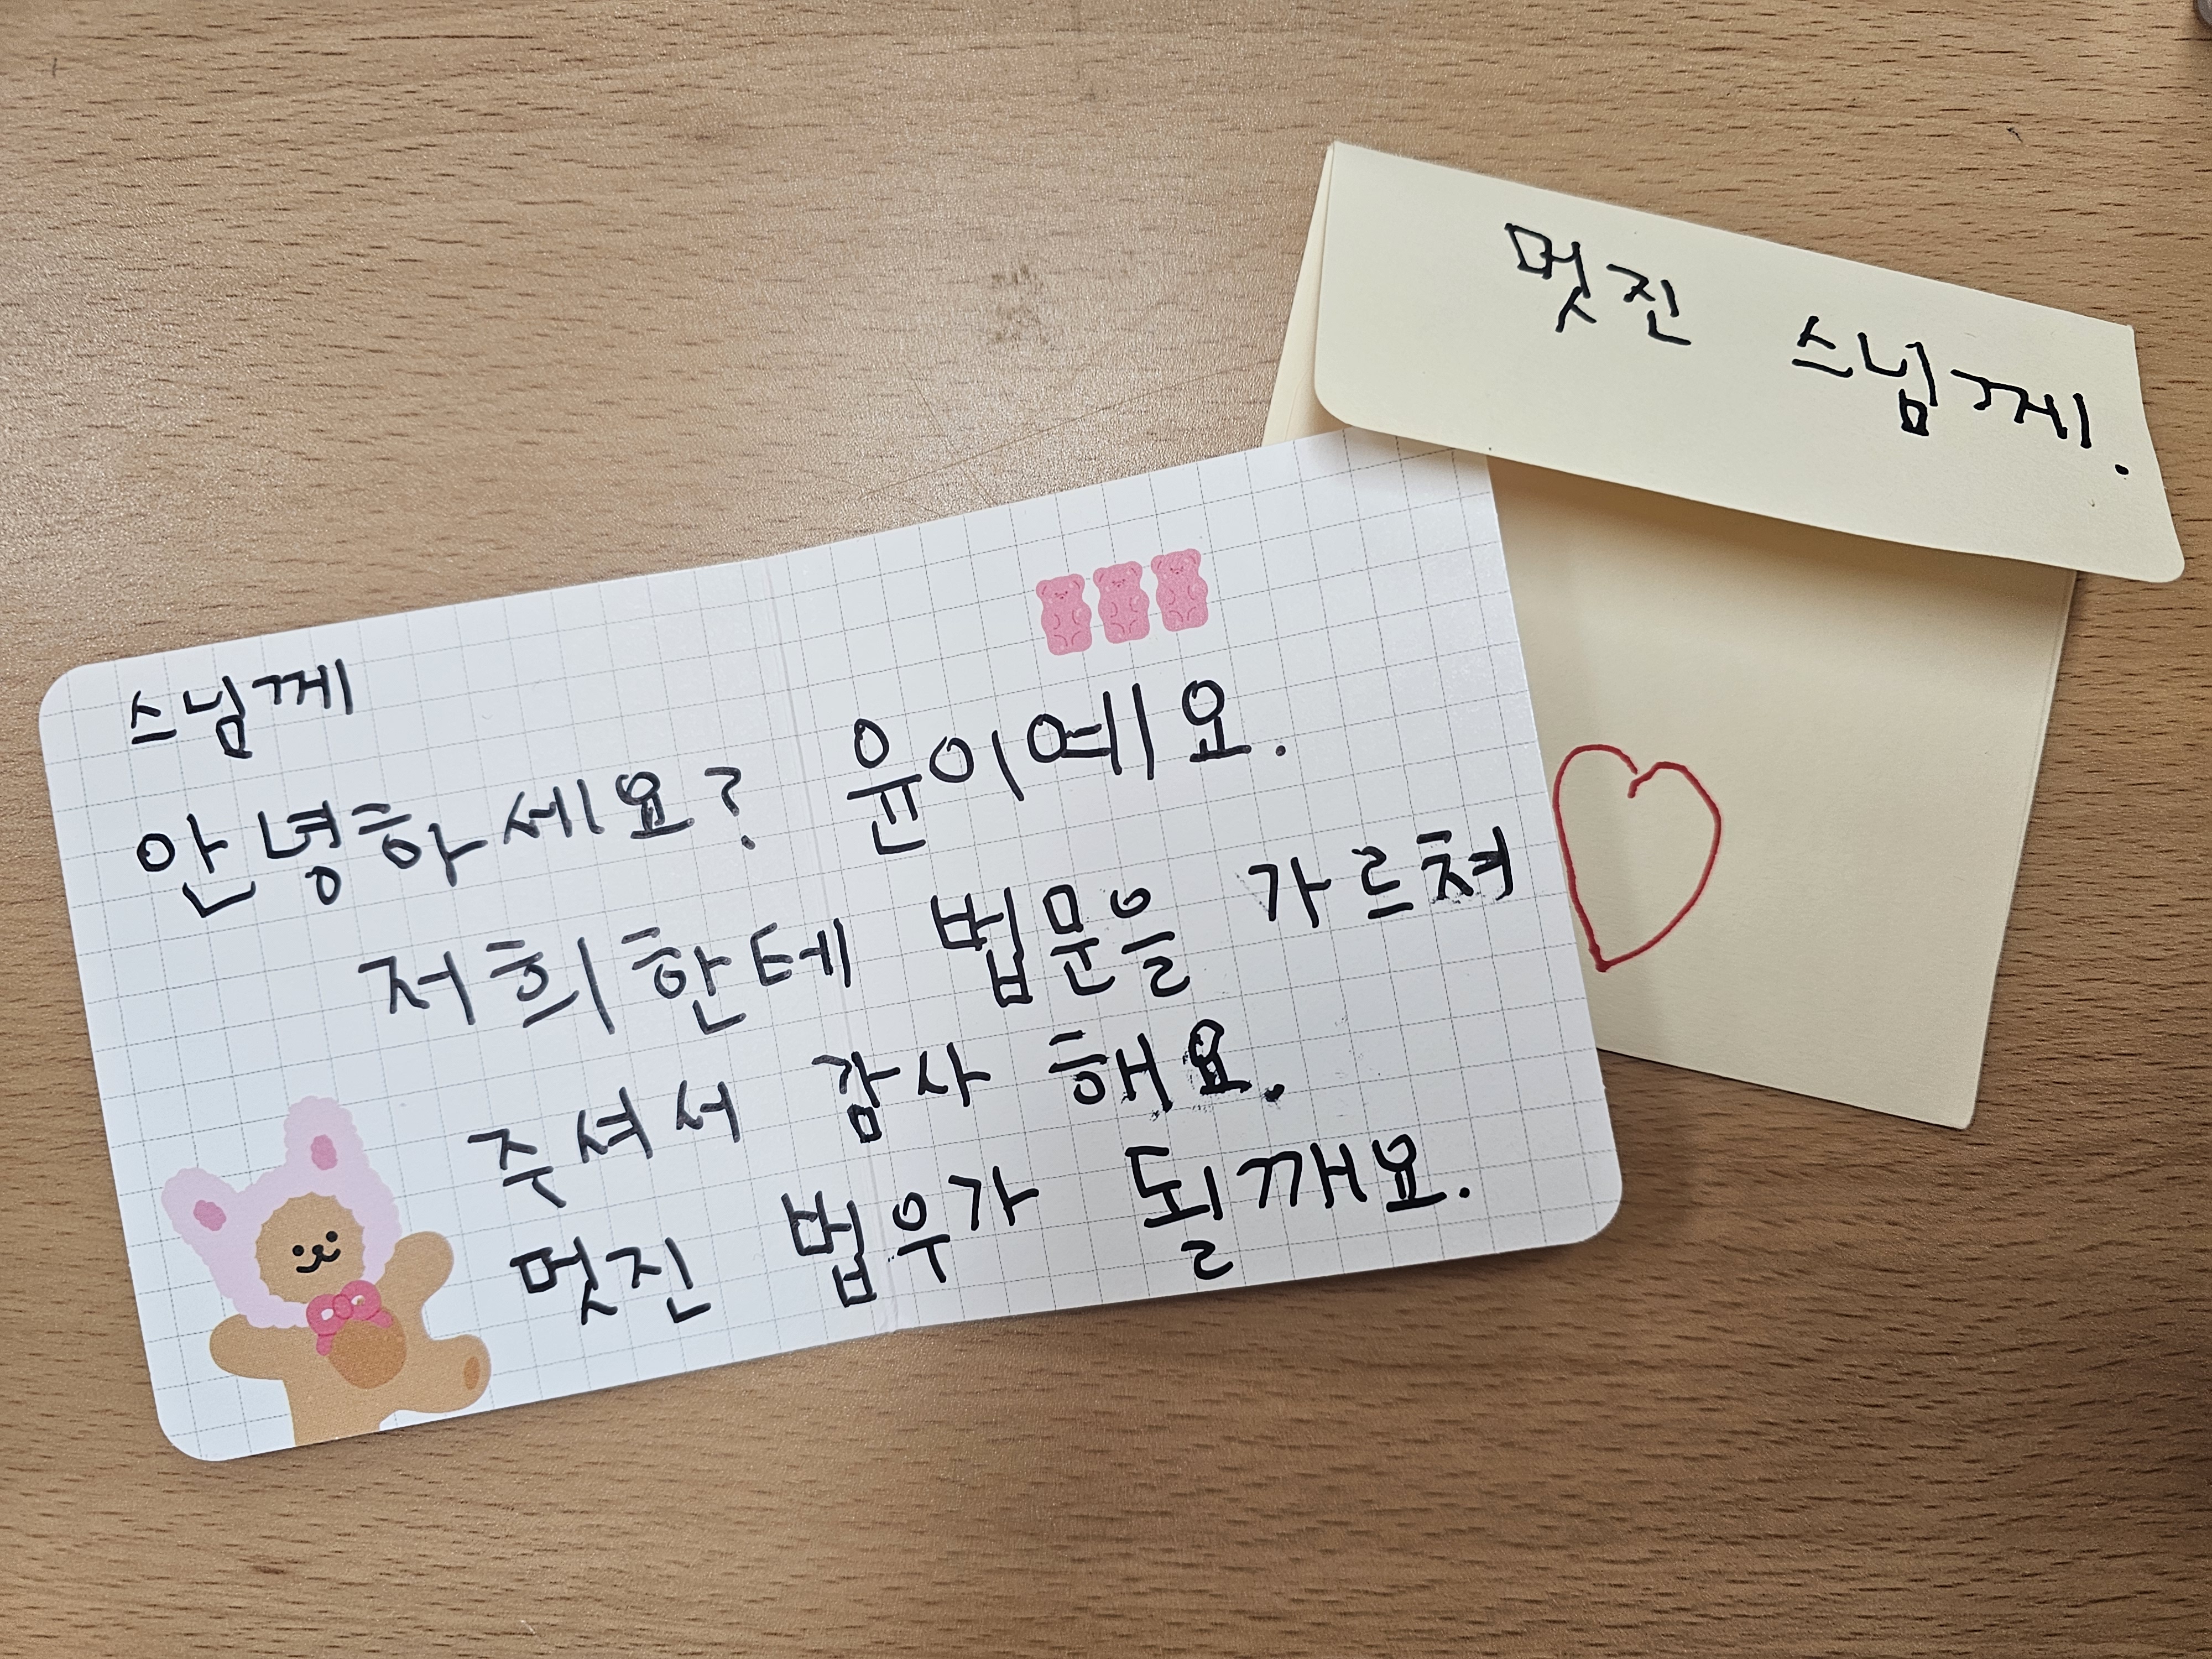 멋진 스님께.
스님께
안녕하세요? 윤이예요.
저희한테 법문을 가르쳐
주셔서 감사 해요.
멋진 법우가 될깨요.